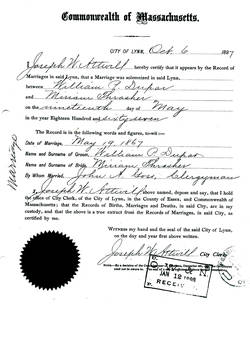 Commonwealth of Massachusetts.
CITY OF LYNN, Oct 6 1887
Joseph W. Attwill hereby certify that it appears by the Record of
Marriages in said Lynn, that a Marriage was solemnized in said Lynn,
between William P. Dupar
and Miriam Thrasher
on the nineteenth day of May
in the year Eighteen Hundred and sixty seven
The Record is in the following words and figures, to-wit:
Date of Marriage, May 19 1867
Name and Surname of Groom, William P. Dupar
Name and Surname of Bride, Miriam Thrasher
By Whom Married, John A. Goss, Clergyman
I, Joseph W. Attwill above named, depose and say, that I hold
the office of City Clerk, of the City of Lynn, in the County of Essex, and Commonwealth of
Massachusetts; that the Records of Births, Marriages and Deaths, in said City, are in my
custody, and that the above is a true extract from the Records of Marriages, in said City, as
certified by me.
WITNESS my hand and the seal of said City of Lynn,
on the day and year first above written.
Joseph W. Attwill City Clerk
JAN 12
RECEIV
Marriage